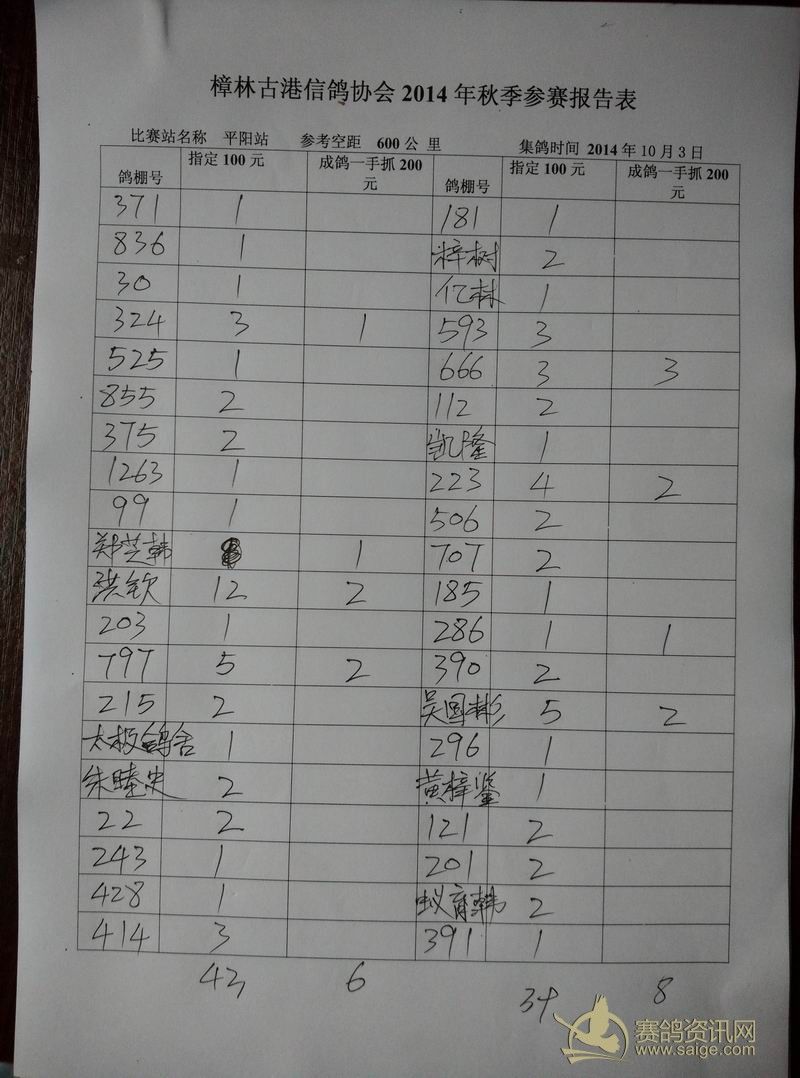 樟林古港信鸽协会 2014 年秋季参赛报告表
比赛站名称 平阳站 参考空距 600 公 里 集鸽时间 2014 年 10 月 3 日
鸽棚号 指定 100 元 成鸽一手抓 200 元 鸽棚号 指定 100 元 成鸽一手抓 200 元
371 1 181 1
836 1 梓树 2
30 1 亿林 1
324 3 1 593 3
525 1 666 3 3
855 2 112 2
375 2 凯隆 1
1263 1 223 4 2
99 1 506 2
郑芝韩 1 707 2
洪钦 12 2 185 1
203 1 286 1 1
797 5 2 390 2
215 2 吴国彬 5 2
太极鸽舍 1 296 1
朱睦史 2 黄梓鉴 1
22 2 121 2
243 1 201 2
428 1 蚁育韩 2
414 3 391 1
6 8
赛鸽资讯网
www.saige.com